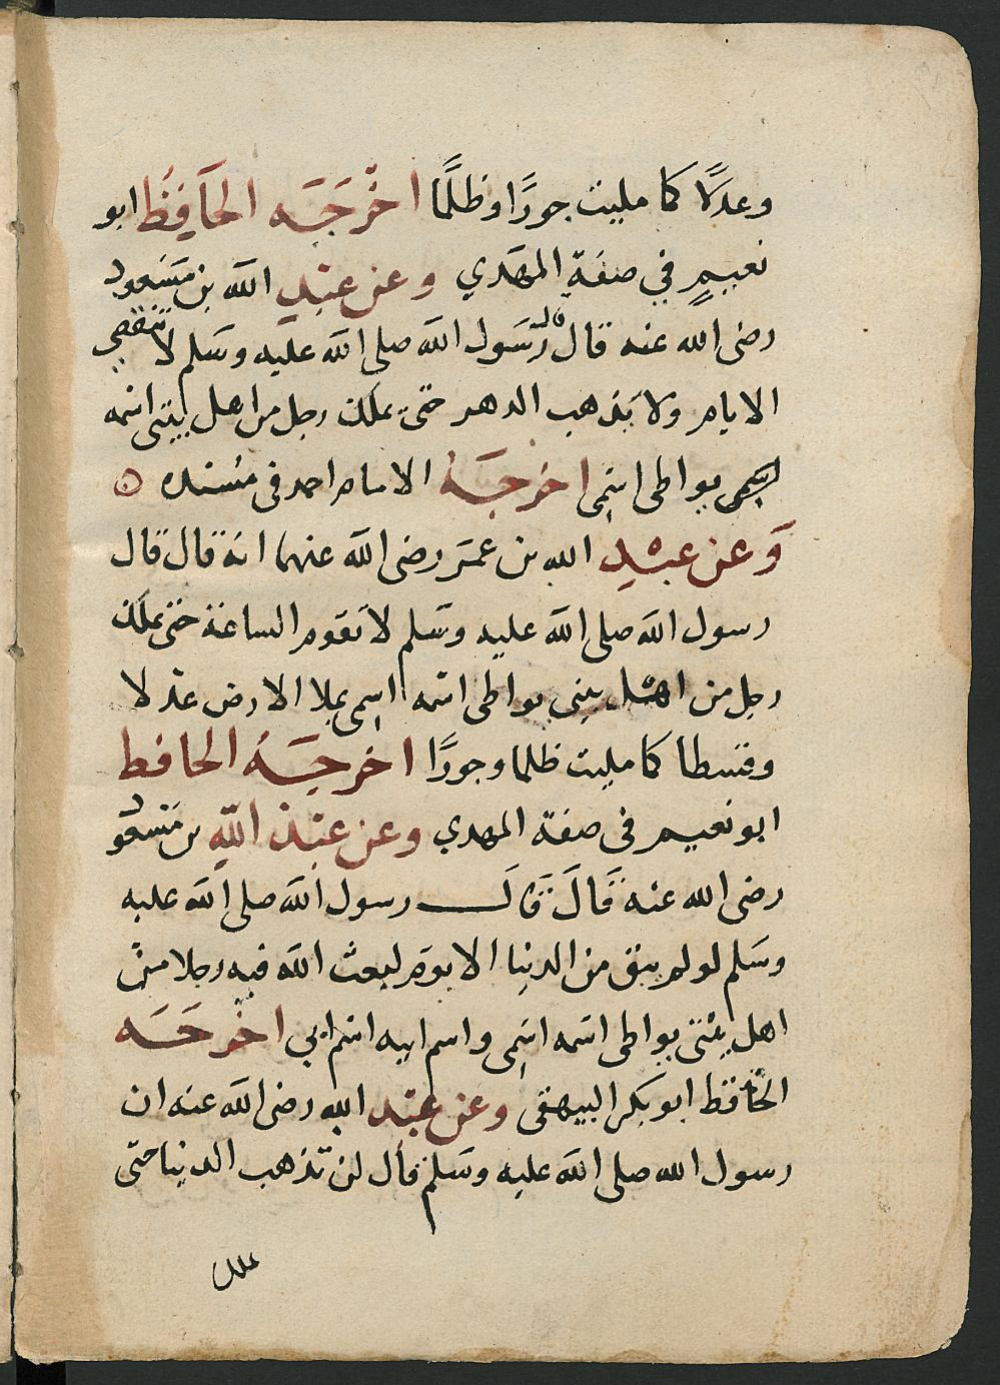 وعدلًا كما مليت جورًا وظلمًا اخْرَجَه الحَافِظ ابو
نعيمٍ في صفةِ المهَدي وعن عَبْدِ الله بن مَسَعود
رضى الله عنه قال قال رَسَول الله صلى الله عليه وسَلم لا تنقضي
الايام ولا يَذهب الدهر حتىّ يملك رجل من اهل بيتى اسمه
اسمى يواطى اسمِى اخرجَهُ الامام احمد فى مسُنده ه
وَعن عبْدِ الله بن عمَر رضى الله عنهما انه قال قال
رسول الله صلى الله عليه وسَلم لا تقوم الساعة حتى يملك
رجل من اهْل بيتى يواطى اسمه اسِمى يملا الارض عدلا
وقسطا كما مليت ظلما وجورًا اخرجَهُ الحافظ
ابو نعيم فى صفة المهدي وعن عَبْد اللهِ بن مَسْعود
رضى الله عنه قَالَ قَالَ رسول الله صلى الله عليه
وسَلم لو لم يبق من الدنيا الا يوم لبعث الله فيه رجلا منْ
اهل بيْتى يواطى اسَمه اسَمِى واسم ابيه اسْم ابي اخْرجَه
الحَافظ ابو بَكر البيهقى وعن عبْد الله رضى الله عنه ان
رسول الله صلى الله عليه وسَلم قال لن تذهب الدنيا حتى
يملك